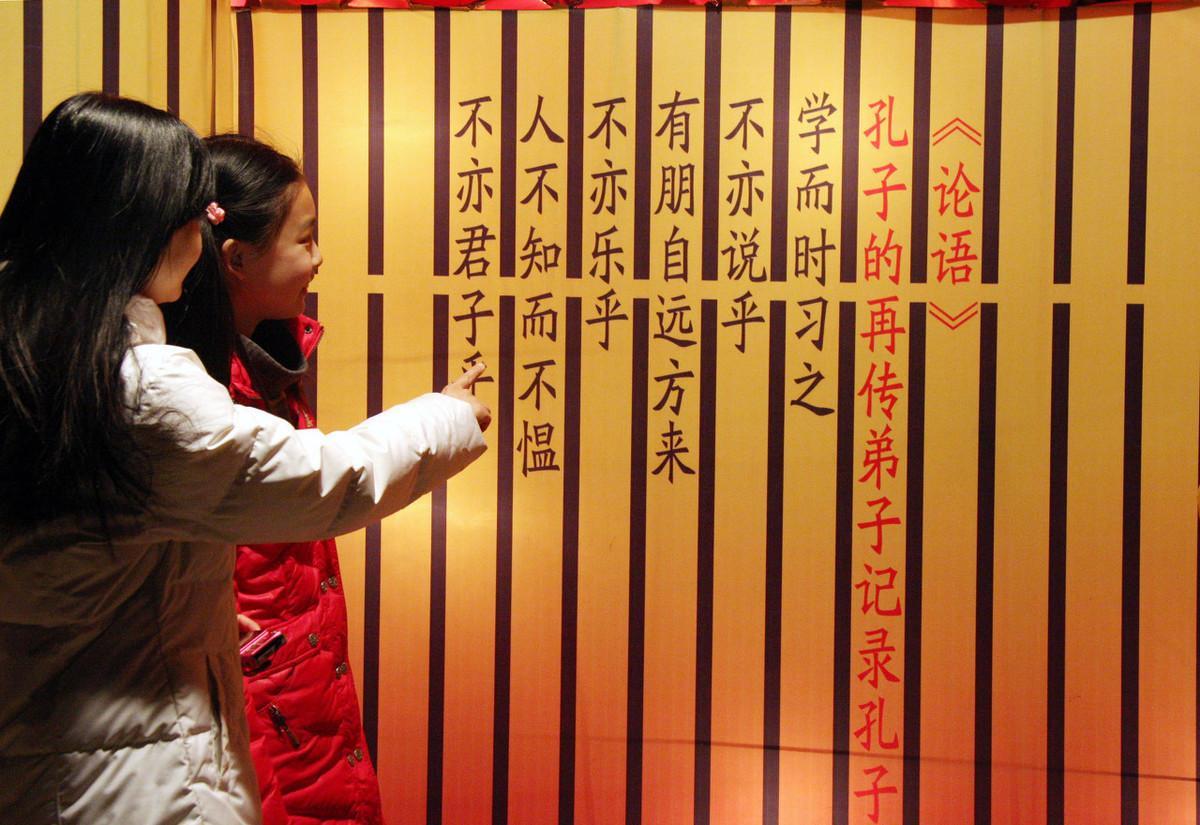 《论语》
孔子的再传弟子记录孔子
学而时习之
不亦说乎
有朋自远方来
不亦乐乎
人不知而不愠
不亦君子乎